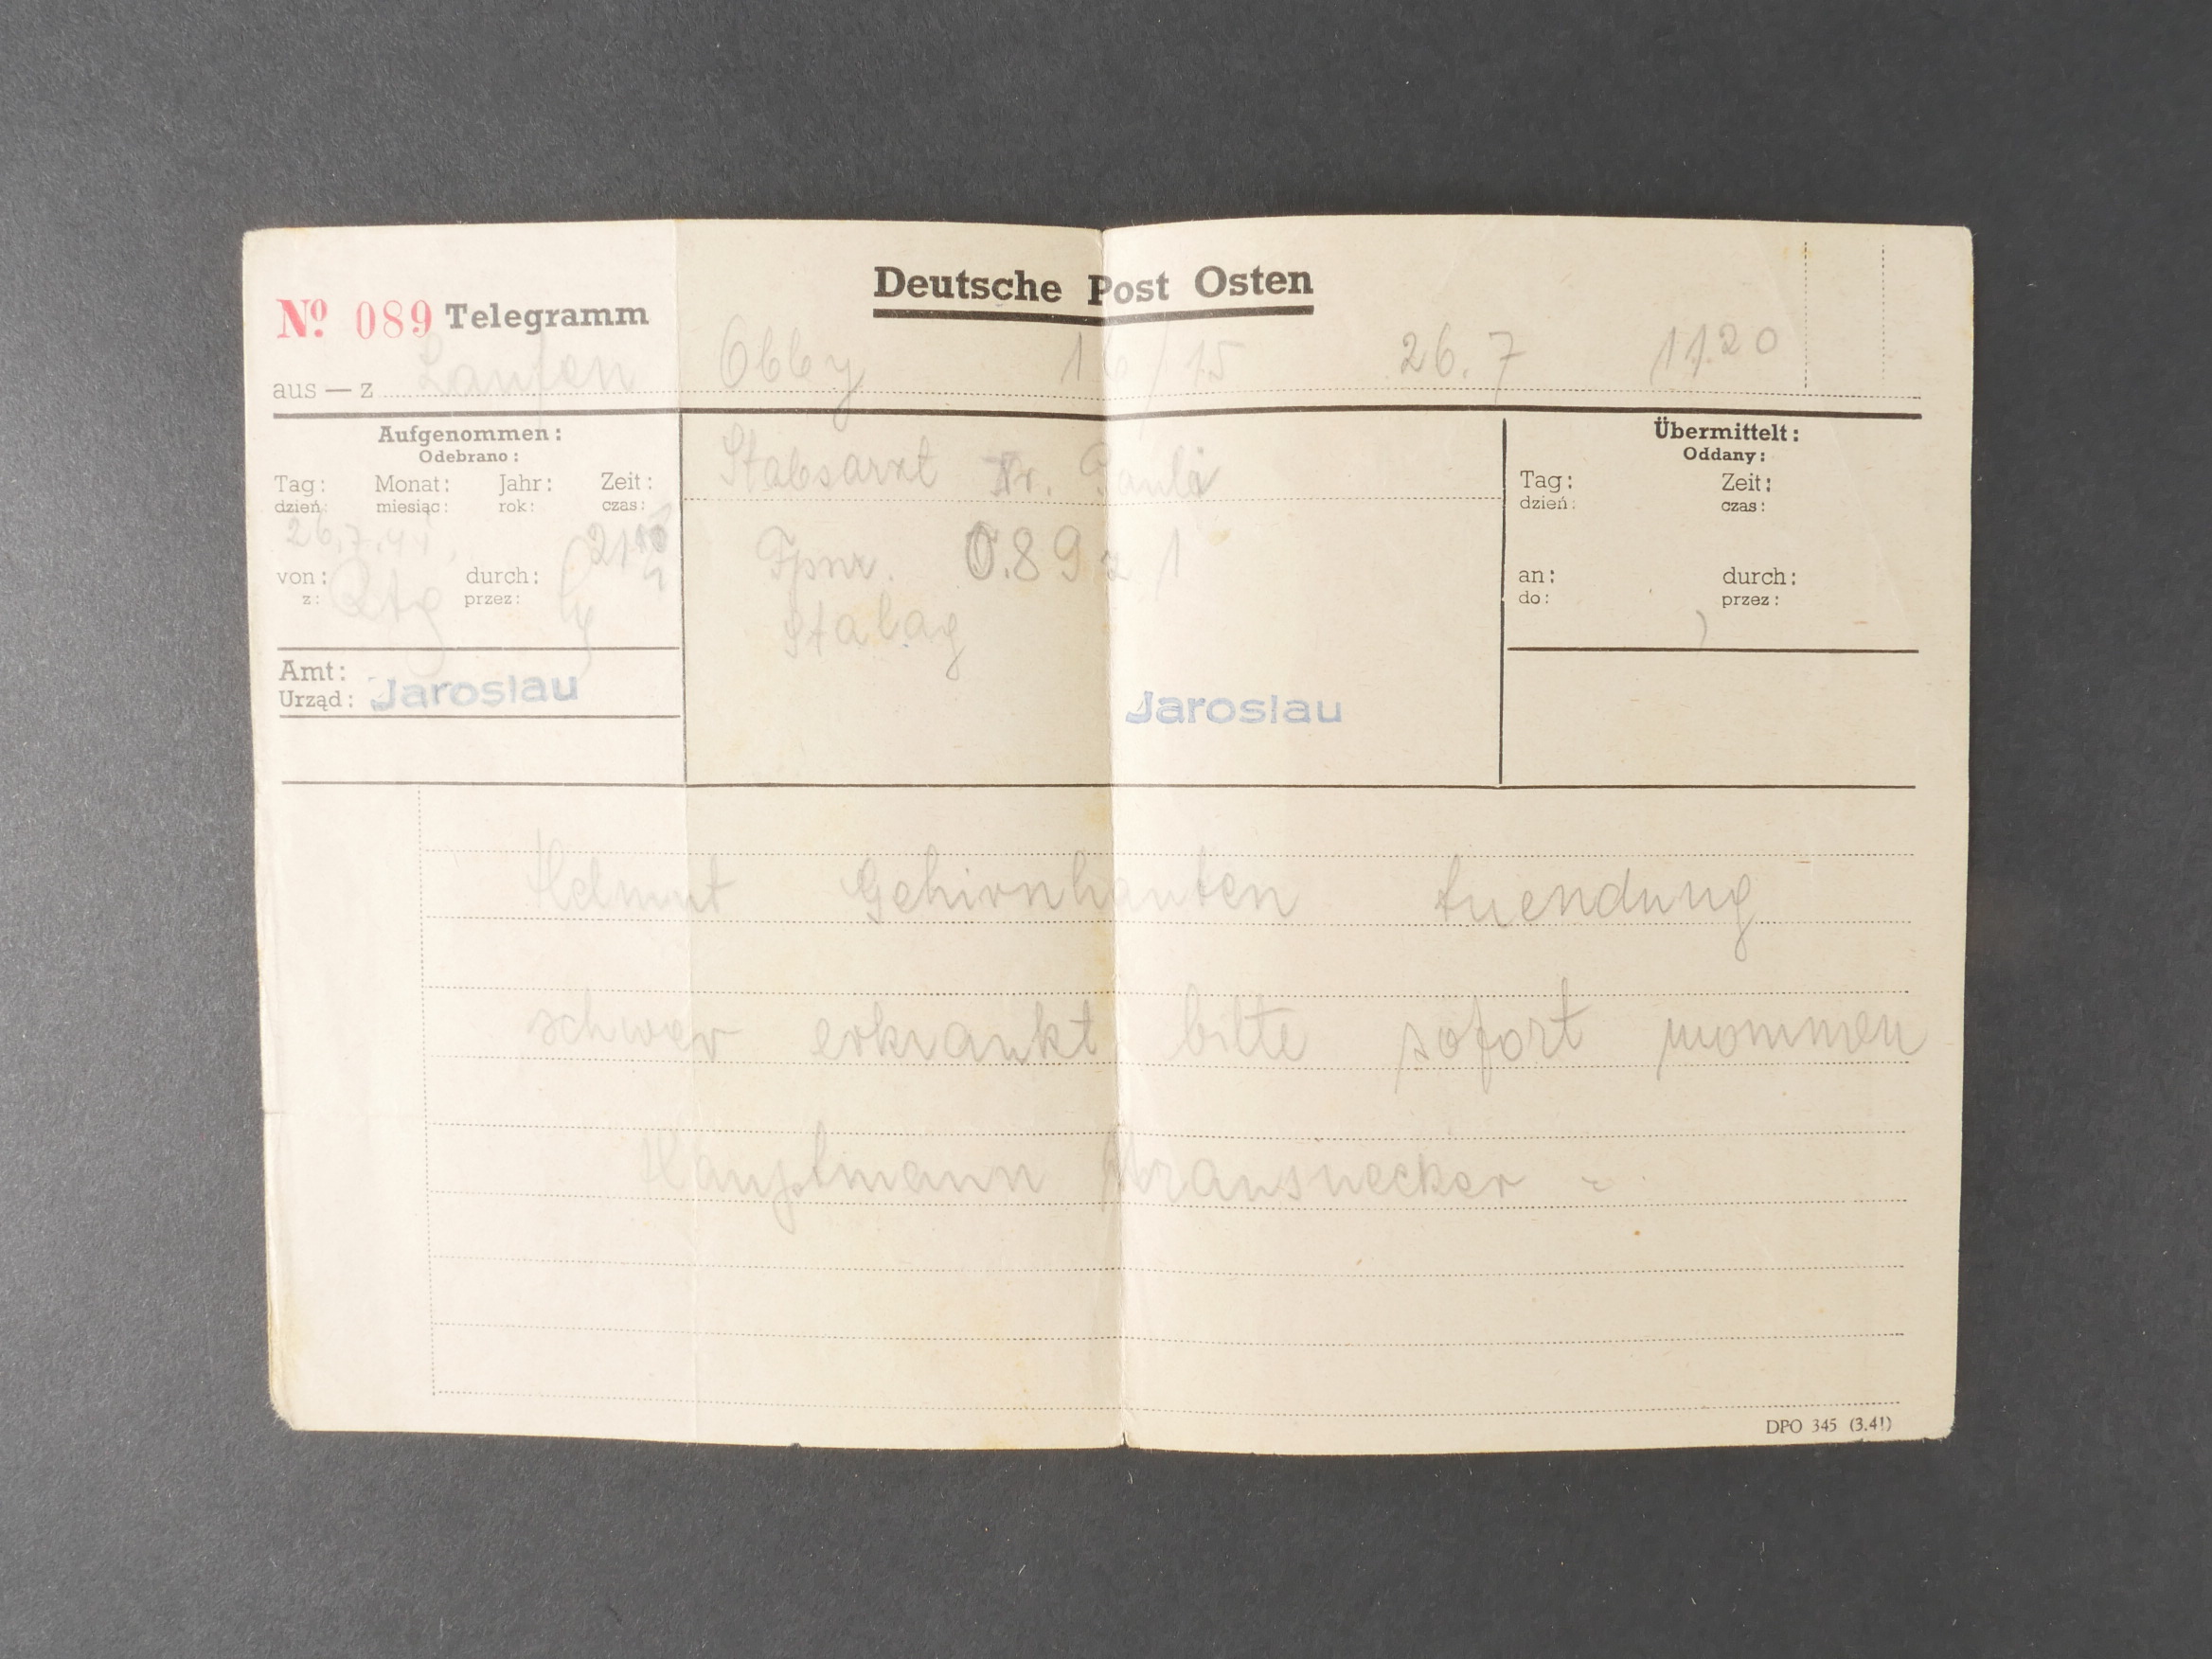 Deutsche Post Osten
No. 089 Telegramm
aus — z Laufen Obby 16/15 26.7 11.20
Aufgenommen:
Odebrano:
Tag: Monat: Jahr: Zeit:
dzień: miesiąc: rok: czas:
26.7.41. 21
von: durch:
z: przez:
Amt:
Urząd: Jaroslau
Stabsarzt Dr. Pauli
Fpnr. 0.89 1
Stalag
Jaroslau
Übermittelt:
Oddany:
Tag: Zeit:
dzień: czas:
an: durch:
do: przez:
Helmut Gehirnhauten tuendung
schwer erkrankt bitte sofort mommen
Hauptmann
DPO 345 (3.41)